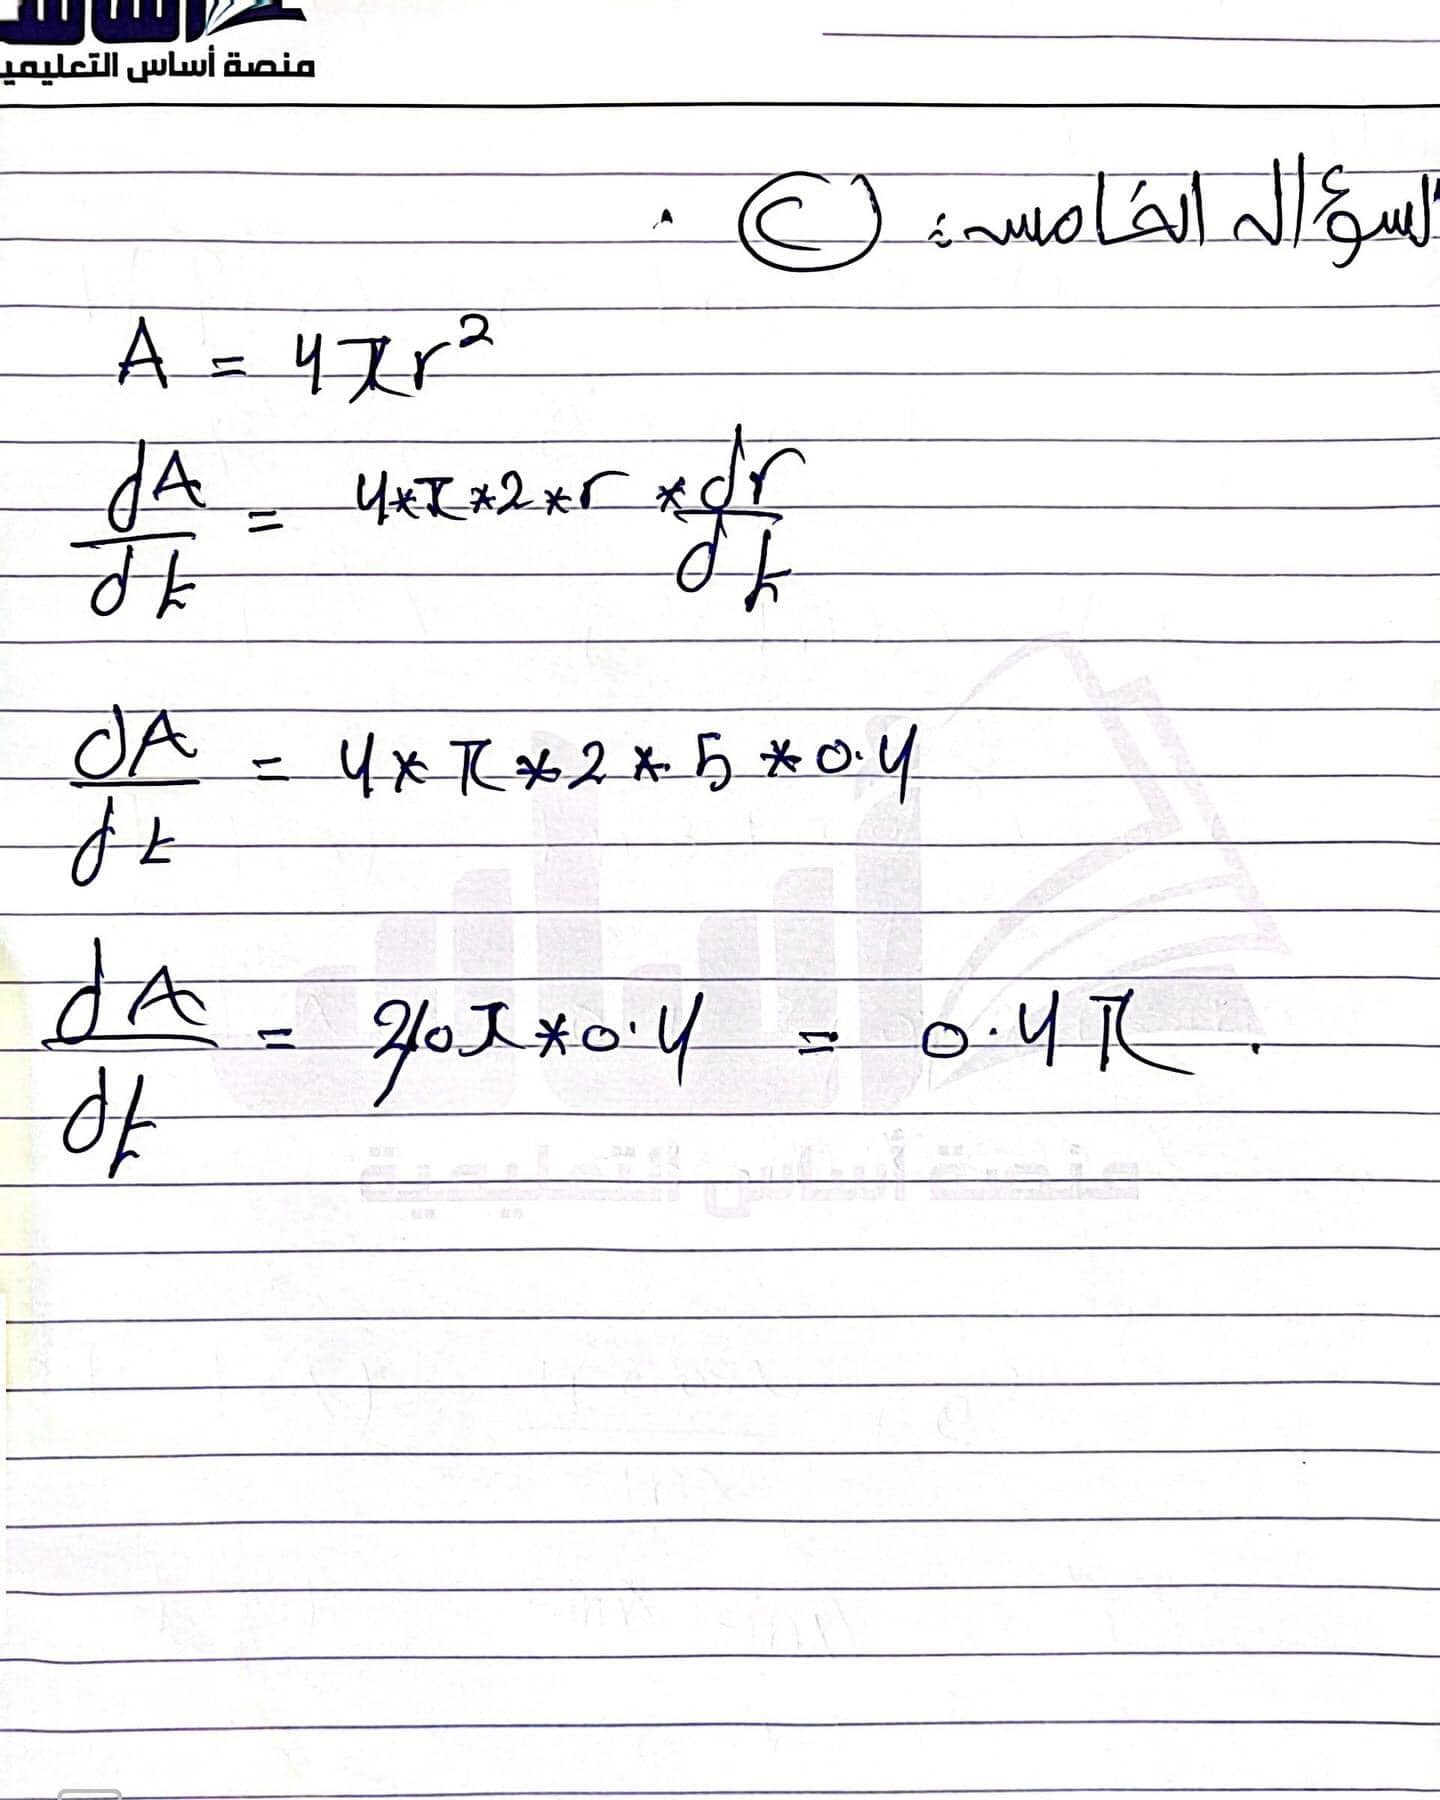 منصة أساس التعليمي
السؤال الخامس: C
A = 4πr²
dA/dt = 4*π*2*r * dr/dt
dA/dt = 4*π*2*5*0.4
dA/dt = 40π*0.4 = 0.4π.
منصة أساس التعليمية